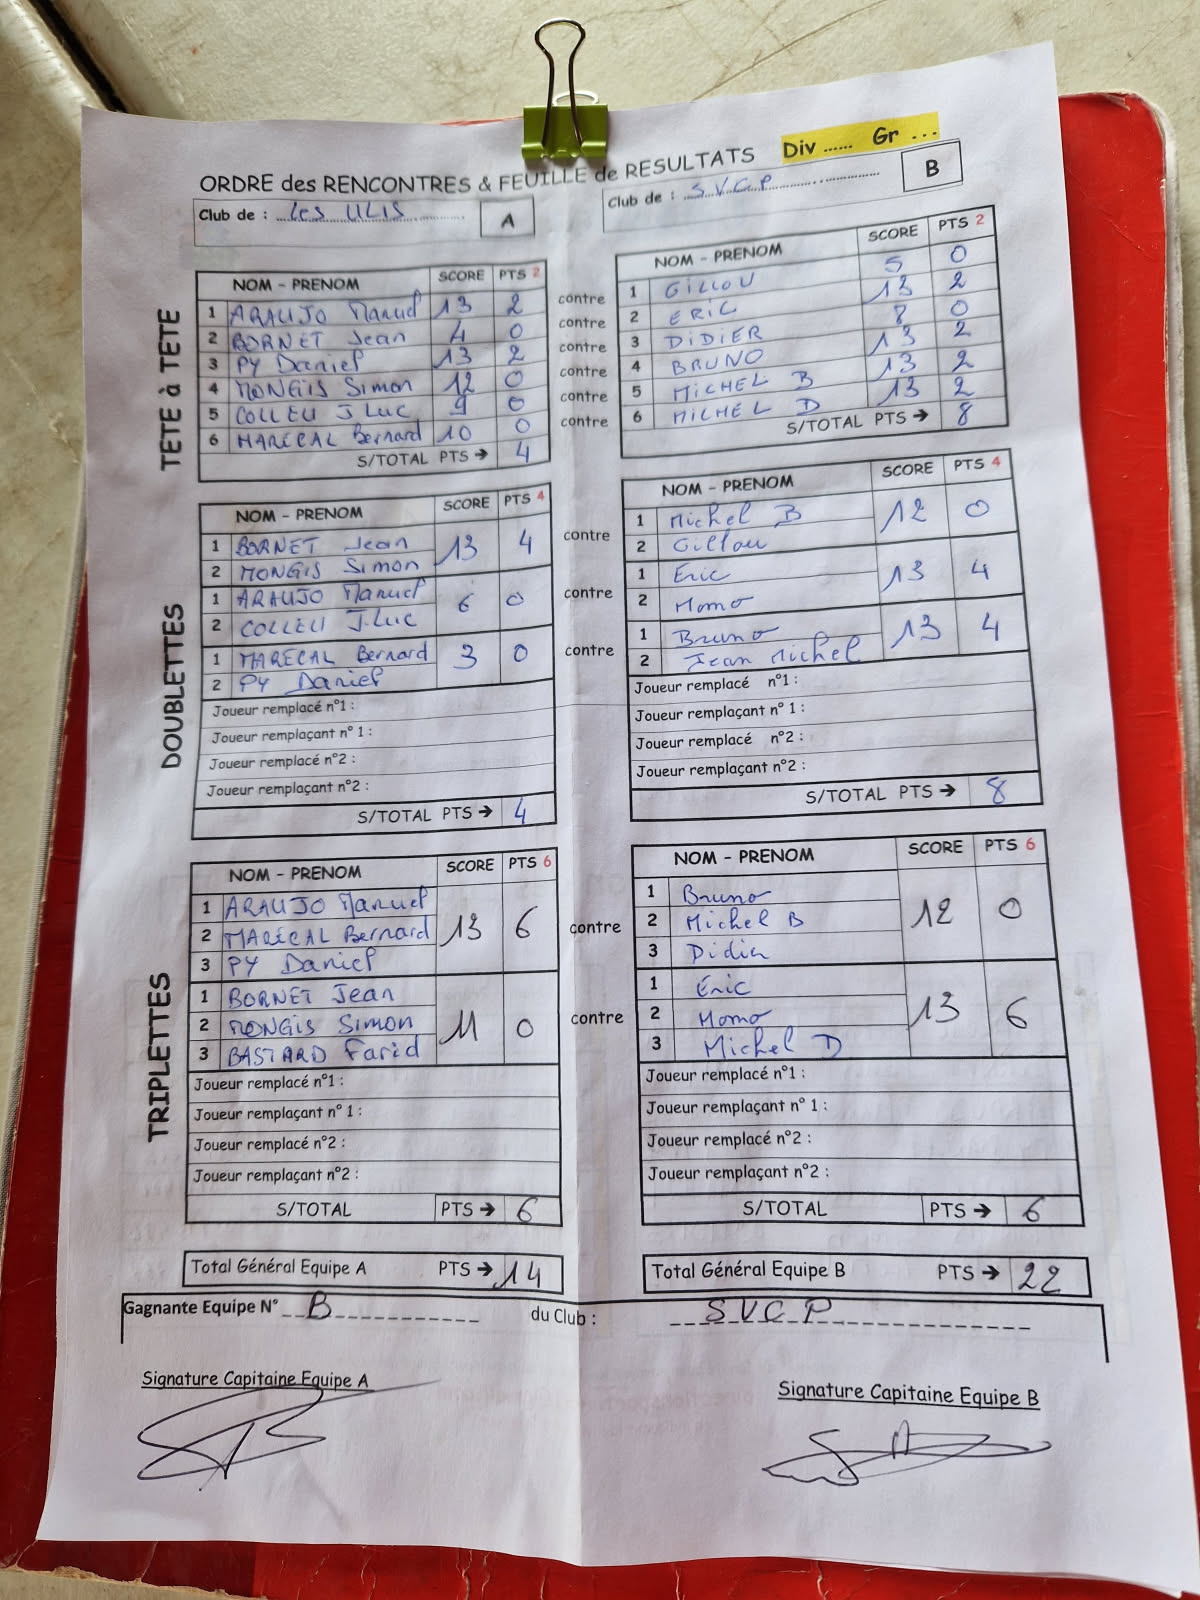 Div ...... Gr ...
ORDRE des RENCONTRES & FEUILLE de RESULTATS
Club de : Les ULIS A
Club de : S.V.C.P B
TETE à TETE
NOM - PRENOM SCORE PTS 2
1 ARAUJO Manuel 13 2
2 BORNET Jean 4 0
3 PY Daniel 13 2
4 MONGIS Simon 12 0
5 COLLEU J Luc 9 0
6 MARECAL Bernard 10 0
S/TOTAL PTS → 4
contre
contre
contre
contre
contre
contre
NOM - PRENOM SCORE PTS 2
1 GILLOU 5 0
2 ERIC 13 2
3 DIDIER 8 0
4 BRUNO 13 2
5 MICHEL B 13 2
6 MICHEL D 13 2
S/TOTAL PTS → 8
DOUBLETTES
NOM - PRENOM SCORE PTS 4
1 BORNET Jean 13 4
2 MONGIS Simon
1 ARAUJO Manuel 6 0
2 COLLEU J.Luc
1 MARECAL Bernard 3 0
2 PY Daniel
Joueur remplacé n°1 :
Joueur remplaçant n° 1 :
Joueur remplacé n°2 :
Joueur remplaçant n°2 :
S/TOTAL PTS → 4
contre
contre
contre
NOM - PRENOM SCORE PTS 4
1 Michel B 12 0
2 Gillou
1 Eric 13 4
2 Momo
1 Bruno 13 4
2 Jean Michel
Joueur remplacé n°1 :
Joueur remplaçant n° 1 :
Joueur remplacé n°2 :
Joueur remplaçant n°2 :
S/TOTAL PTS → 8
TRIPLETTES
NOM - PRENOM SCORE PTS 6
1 ARAUJO Manuel
2 MARECAL Bernard 13 6
3 PY Daniel
1 BORNET Jean
2 MONGIS Simon 11 0
3 BASTARD Farid
Joueur remplacé n°1 :
Joueur remplaçant n° 1 :
Joueur remplacé n°2 :
Joueur remplaçant n°2 :
S/TOTAL PTS → 6
contre
contre
NOM - PRENOM SCORE PTS 6
1 Bruno
2 Michel B 12 0
3 Didier
1 Éric
2 Momo 13 6
3 Michel D
Joueur remplacé n°1 :
Joueur remplaçant n° 1 :
Joueur remplacé n°2 :
Joueur remplaçant n°2 :
S/TOTAL PTS → 6
Total Général Equipe A PTS → 14
Total Général Equipe B PTS → 22
Gagnante Equipe N° B du Club : S.V.C.P
Signature Capitaine Equipe A
Signature Capitaine Equipe B